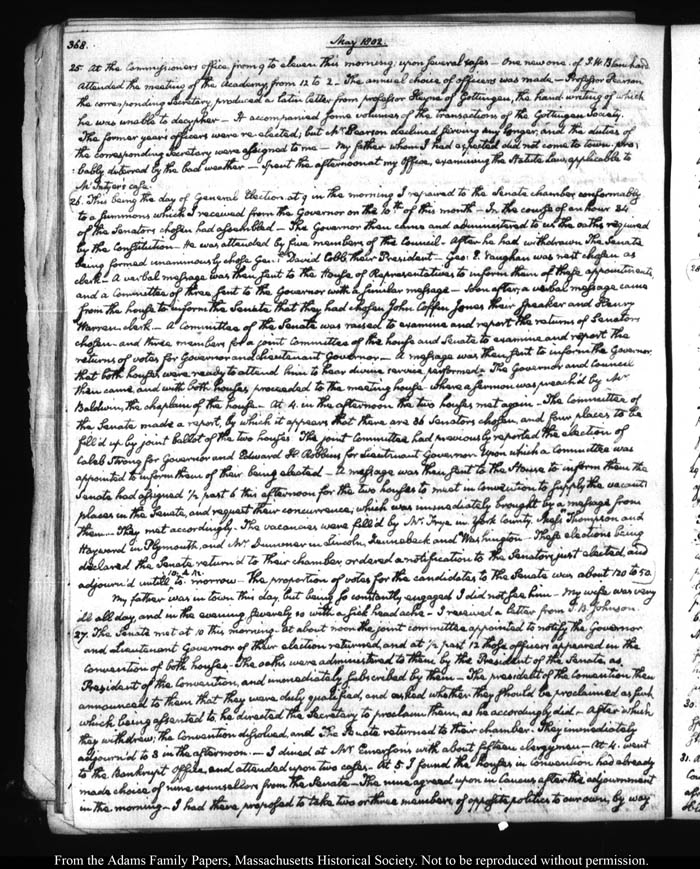 368.
May 1802.
25. At the Commissioners office from 9 to eleven this morning, upon several cases — One new one of S. W. Blanchard
attended the meeting of the Academy from 12 to 2. The annual choice of officers was made — Professor Pearson
the corresponding Secretary, produced a latin letter from professor Heyne of Gottingen, the hand-writing of which
he was unable to decypher — It accompanied some volumes of the transactions of the Gottingen Society.
The former year's officers were re-elected; but Mr. Pearson declined serving any longer, and the duties of
the corresponding Secretary were assigned to me — My father whom I had expected did not come to town. pro-
bably deterred by the bad weather — Spent the afternoon at my Office, examining the Statute laws applicable to
case.
26. This being the day of General Election at 9 in the morning I repaired to the Senate chamber conformably
to a summons which I received from the Governor on the 10th of this month — In the course of an hour 34
of the Senators chosen had assembled — The Governor then came and administered to us the oaths required
by the Constitution. He was attended by five members of the Council. After he had withdrawn the Senate
being formed unanimously chose Genl. David Cobb their President — Geo: E. Vaughan was next chosen as
clerk — A verbal message was then sent to the House of Representatives to inform them of these appointments,
and a Committee of three sent to the Governor with a similar message — Soon after, a verbal message came
from the house to inform the Senate that they had chosen John Coffin Jones their Speaker and Henry
Warren clerk — A Committee of the Senate was raised to examine and report the returns of Senators
chosen — and three members for a joint Committee of the house and Senate to examine and report the
returns of votes for Governor and Lieutenant Governor — A message was then sent to inform the Governor
that both houses were ready to attend him to hear divine service performed — The Governor and Council
then came and with both houses proceeded to the meeting house where a sermon was preach'd by Mr.
Baldwin, the chaplain of the house — At 4. in the afternoon the two houses met again — The Committee of
the Senate made a report, by which it appears that there are 36 Senators chosen, and four places to be
fill'd up by joint ballot of the two houses. The joint Committee had previously reported the election of
Caleb Strong for Governor and Edward H. Robbins for Lieutenant Governor. Upon which a Committee was
appointed to inform them of their being elected — A message was then sent to the House to inform them the
Senate had assigned 1/2 past 6 this afternoon for the two houses to meet in Convention to supply the vacant
places in the Senate, and request their concurrence, which was immediately brought by a message from
them — They met accordingly — The vacancies were fill'd by Mr. Frye in York County, Messrs. Thompson and
Hayward in Plymouth, and Mr. Dummer in Lincoln, Kennebeck and Washington — These elections being
declared the Senate return'd to their chamber ordered a notification to the Senators just elected, and
adjourn'd untill 10. A.M. to-morrow — The proportion of votes for the candidates to the Senate was about 120 to 50.
My father was in town this day, but being so constantly engaged I did not see him — My wife was very
ill all day, and in the evening severely so with a sick head ache — I received a letter from T. B. Johnson.
27. The Senate met at 10 this morning. At about noon the joint committee appointed to notify the Governor
and Lieutenant Governor of their election returned, and at 1/2 past 12 those officers appeared in the
Convention of both houses — The oaths were administered to them by the President of the Senate, as
President of the Convention, and immediately subscribed by them — The president of the Convention then
announced to them that they were duly qualified, and asked whether they should be proclaimed as such
which being assented to, he directed the Secretary to proclaim them, as he accordingly did — After which
they withdrew, the Convention dissolved, and the Senate returned to their chamber. They immediately
adjourn'd to 3 in the afternoon — I dined at Mr. Emerson's with about fifteen clergymen — At 4. went
to the Bankrupt Office, and attended upon two cases. At 5 I found the houses in Convention had already
made choice of nine counsellors from the Senate — The nine agreed upon in Caucus after the adjournment
in the morning — I had there proposed to take two or three members of opposite politics to our own, by way
From the Adams Family Papers, Massachusetts Historical Society. Not to be reproduced without permission.